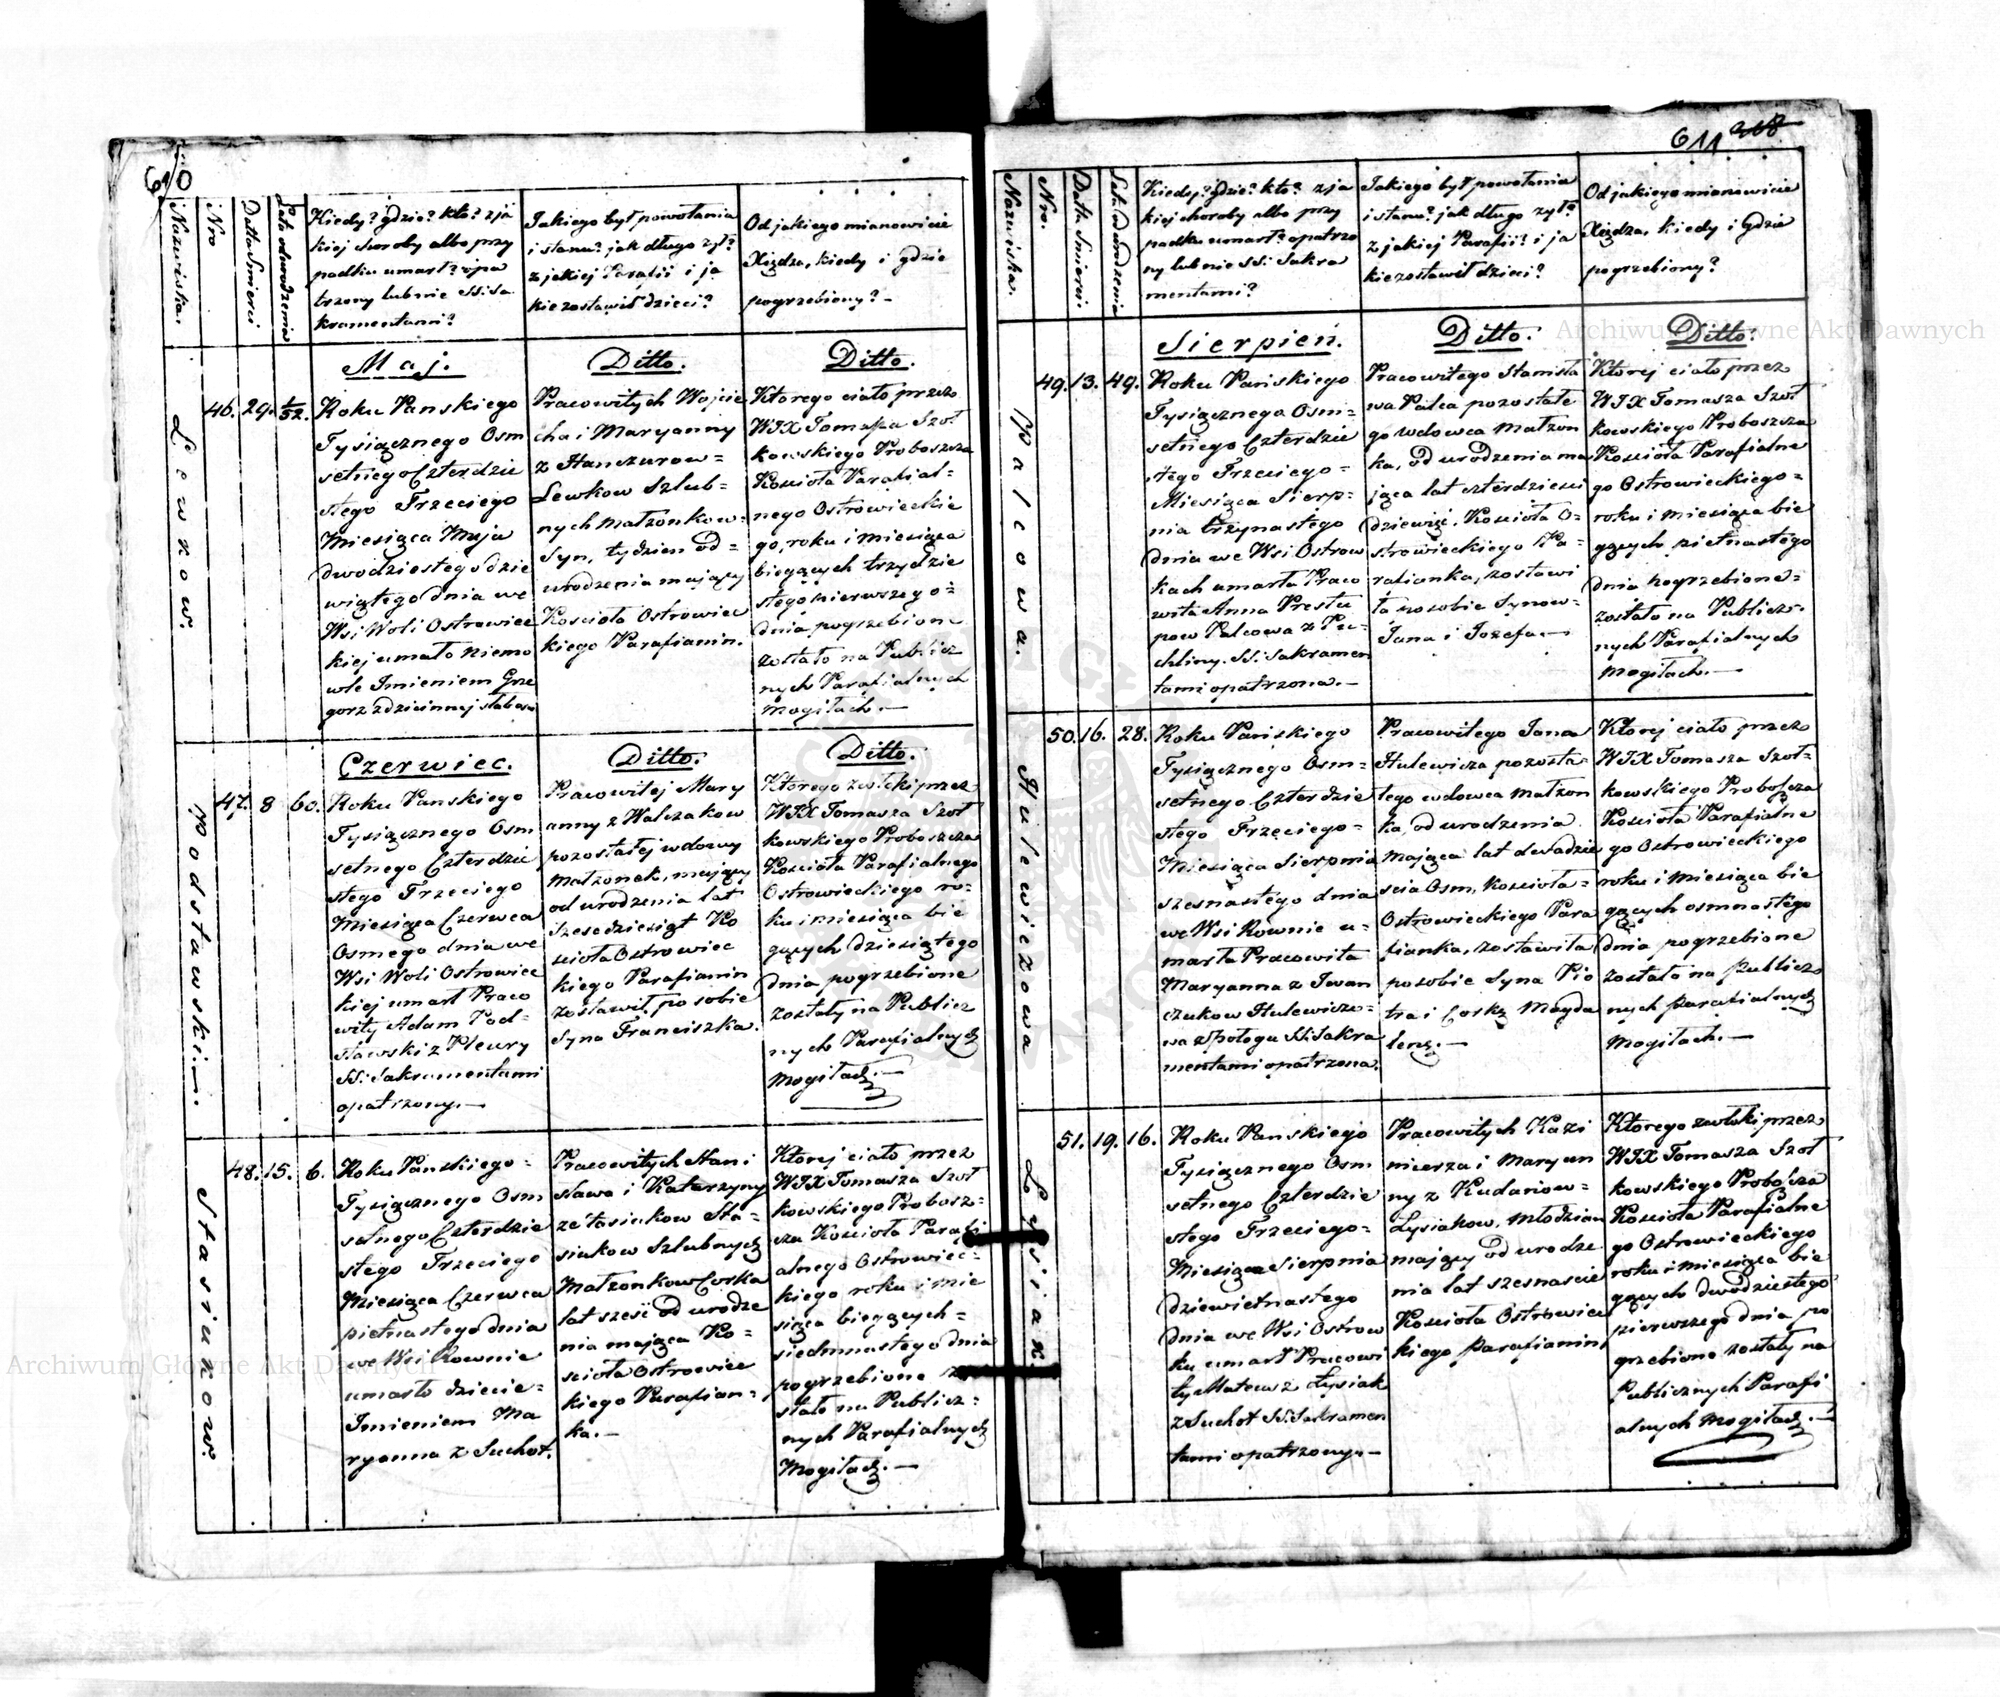 610
Nazwiska.
Nro
Datta Smierci
Lata od urodzenia
Kiedy? gdzie? kto? z ja
kiej choroby albo przy
padku umarł? opa
trzony lub nie SS: Sa
kramentami?
Jakiego był powołania
i stanu? jak długo żył?
z jakiej Parafii i ja
kie zostawił dzieci?
Od jakiego mianowicie
Xiędza, kiedy i gdzie
pogrzebiony? –
Lewkow.
46.
29.
1/52.
Maj.
Roku Panskiego
Tysiącznego Osm
setnego Czterdzie
stego Trzeciego
Miesiąca Maja
dwodziestego dzie
wiątego dnia we
Wsi Woli Ostrowiec
kiej umało Niemo
wle Imieniem Grze
gorz z dziecinnej słabosci
Ditto.
Pracowitych Wojcie
cha i Maryanny
z Hanczurow =
Lewkow Szlub =
nych Małzonkow =
Syn, tydzien od =
urodzenia mający
Kościoła Ostrowiec
kiego Parafianin.
Ditto.
Ktorego ciało przez
WJX Tomasza Szoł
kowskiego Proboszcza
Kościoła Parafial =
nego Ostrowieckie
go, roku i miesiąca
bieżących trzydzie
stego pierwszego =
dnia pogrzebione
zostało na Publicz
nych Parafialnych
Mogiłach. –
Podstawski.
47.
8
60.
Czerwiec.
Roku Panskiego
Tysiącznego Osm
setnego Czterdzie
stego Trzeciego
Miesiąca Czerwca
Osmego dnia we
Wsi Woli Ostrowiec
kiej umarł Praco
wity Adam Pod =
stawski z Pleury
SS: Sakramentami
opatrzony. –
Ditto.
Pracowitej Mary
anny z Walczakow
pozostałej wdowy
Małzonek, mający
od urodzenia lat
Szesedziesiąt Ko
scioła Ostrowiec
kiego Parafianin
zostawił po sobie
Syna Franciszka.
Ditto.
Ktorego zwłoki przez
WJX Tomasza Szoł
kowskiego Proboszcza
Kościoła Parafialnego
Ostrowieckiego ro =
ku i miesiąca bie
gących dziesiątego
dnia pogrzebione
zostały na Publicz
nych Parafialnych
Mogiłach. –
Stasiukow.
48.
15.
6.
Roku Panskiego =
Tysiącznego Osm
setnego Czterdzie
stego Trzeciego
Miesiąca Czerwca
pietnastego dnia
we Wsi Rownie
umarło dziecie =
Imieniem Ma
ryanna z Suchot.
Pracowitych Stani
sława i Katarzyny
ze Stasiukow Sta =
siukow Szlubnych
Małzonkow Corka
lat sześć od urodze
nia mająca Ko =
scioła Ostrowiec
kiego Parafian =
ka. –
Ktorej ciało przez
WJX Tomasza Szoł
kowskiego Probosz =
cza Kościoła Parafi
alnego Ostrowiec =
kiego roku i mie
siąca biegących =
siedmnastego dnia
pogrzebione zo
stało na Publicz =
nych Parafialnych
Mogiłach. –
611
Nazwiska.
Nro.
Datta Smierci.
Lata od urodzenia
Kiedy? gdzie? kto? z ja
kiej choroby albo przy
padku umarł? opatrzo
ny lub nie SS: Sakra
mentami?
Jakiego był powołania
i stanu? jak długo żył?
z jakiej Parafii? i ja
kie zostawił dzieci?
Od jakiego mianowicie
Xiędza, kiedy i gdzie
pogrzebiony?
Palcowa.
49.
13.
49.
Sierpień.
Roku Pańskiego
Tysiącznego Osm =
setnego Czterdzie
stego Trzeciego =
Miesiąca Sierp =
nia trzynastego
dnia we Wsi Ostrow
kach umarła Praco
wita Anna Prestu
pow Palcowa z Pu =
chliny. SS: Sakramen
tami opatrzona. –
Ditto.
Pracowitego Stanisła
wa Palca pozostałe
go wdowca Małzon
ka, od urodzenia ma
jąca lat czterdzieści
dziewięć. Kościoła O =
strowieckiego Pa =
rafianka, zostawi
ła po sobie Synow =
Jana i Jozefa. –
Ditto.
Ktorej ciało przez
WJX Tomasza Szoł
kowskiego Proboszcza
Kościoła Parafialne
go Ostrowieckiego =
roku i miesiąca bie
gących pietnastego
dnia pogrzebione =
zostało na Publicz =
nych Parafialnych
Mogiłach. –
Hulewiczowa
50.
16.
28.
Roku Pańskiego
Tysiącznego Osm =
setnego Czterdzie
stego Trzeciego =
Miesiąca Sierpnia
szesnastego dnia
we Wsi Rownie u =
marła Pracowita
Maryanna z Iwan
czukow Hulewiczo =
wa z połogu SS: Sakra
mentami opatrzona.
Pracowitego Jana
Hulewicza pozosta =
łego wdowca Małzon
ka, od urodzenia
mająca lat dwadzie
scia Osm, Kościoła =
Ostrowieckiego Para
fianka, zostawiła
po sobie Syna Pio
tra i Corkę Magda
lenę. –
Ktorej ciało przez
WJX Tomasza Szoł =
kowskiego Proboszcza
Kościoła Parafialne
go Ostrowieckiego
roku i Miesiąca bie
gących osmnastego
dnia pogrzebione
zostało na Publicz
nych Parafialnych
Mogiłach. –
Łysiak.
51.
19.
16.
Roku Panskiego
Tysiącznego Osm
setnego Czterdzie
stego Trzeciego =
Miesiąca Sierpnia
dziewietnastego
dnia we Wsi Ostrow
ku umarł Pracowi
ty Mateusz Łysiak
z Suchot SS: Sakramen
tami opatrzony. –
Pracowitych Kazi
mierza i Maryan
ny z Kudaniow =
Łysiakow, Młodzian
mający od urodze
nia lat szesnascie
Kościoła Ostrowiec
kiego Parafianin,
Ktorego zwłoki przez
WJX Tomasza Szoł
kowskiego Proboszcza
Kościoła Parafialne
go Ostrowieckiego
roku i miesiąca bie
gących dwódziestego
pierwszego dnia po
grzebione zostały na
Publicznych Parafi
alnych Mogiłach. –
Archiwum Główne Akt Dawnych
Archiwum Główne Akt Dawnych